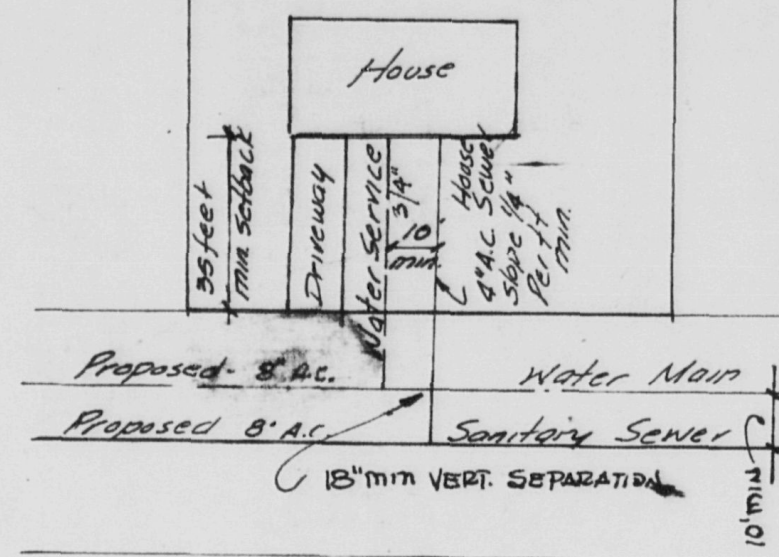 House
35 feet
min setback
Driveway
Water Service
3/4"
10'
min.
House
4" A.C. Sewer
Slope 1/4"
Per ft
min.
Proposed - 8" A.C. Water Main
Proposed 8" A.C. Sanitary Sewer
10' MIN
18" min VERT. SEPARATION